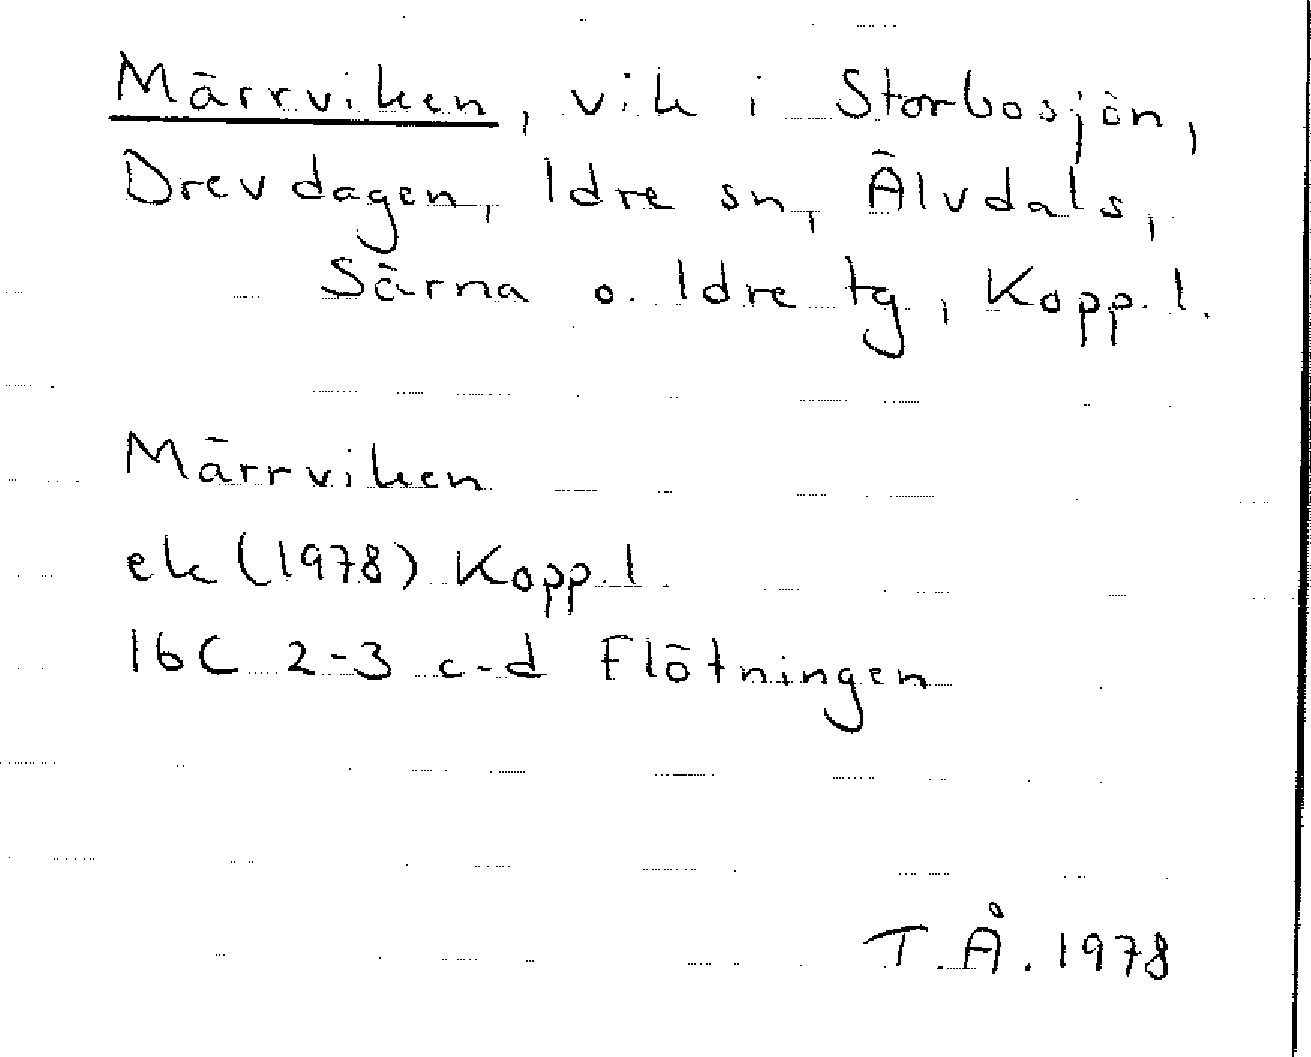 Märrviken, vik i Storbosjön,
Drevdagen, Idre sn, Älvdals,
Särna o. Idre tg, Kopp. l.
Märrviken
ek (1978) Kopp. l
16C 2-3 c-d Flötningen
T.Å. 1978